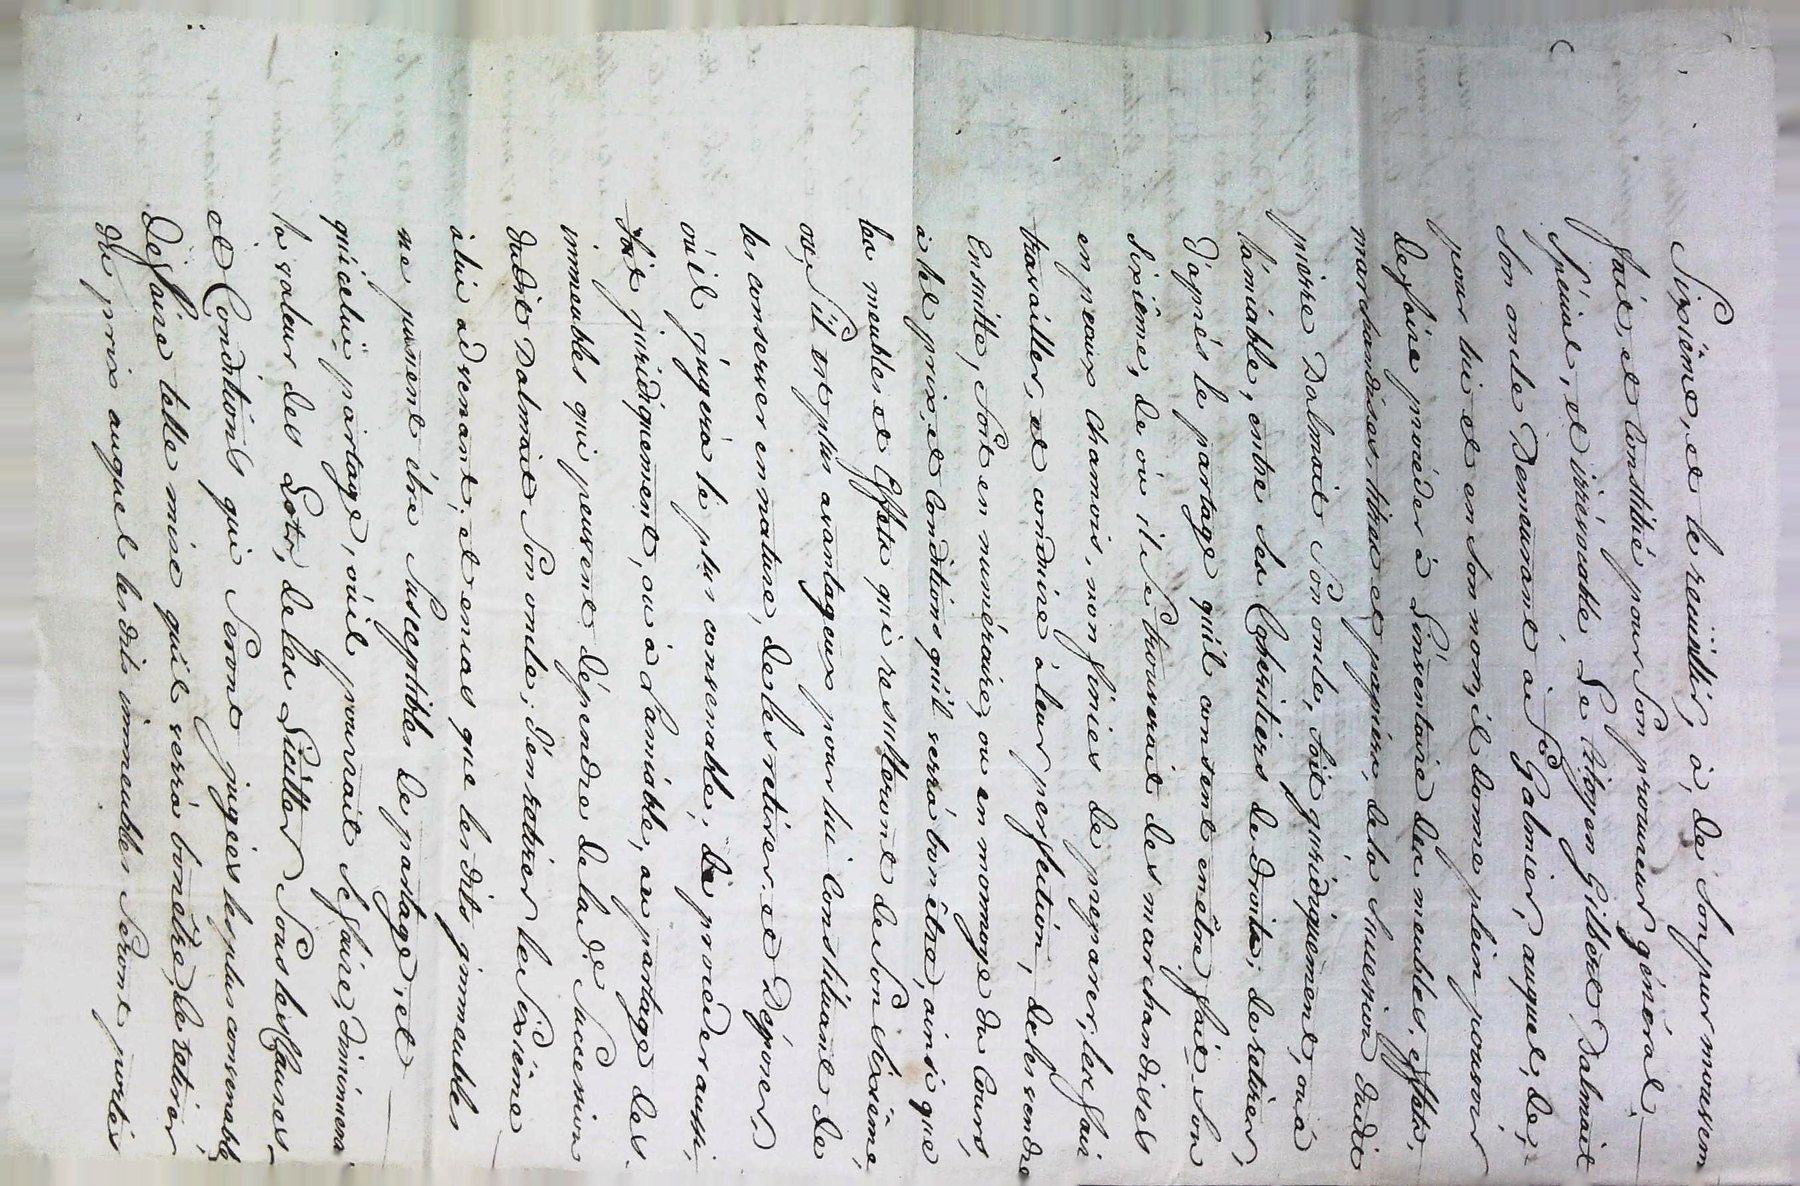 Sixième, et le reuillir, à, de Son pur mouvem
fait, et Constitué pour Son procureur général
Spécial, et irrévocable, Le Citoyen Gilbert Dalmait
Son oncle Demeurant à St Galmier, auquel, de,
pour lui et en Son nom, il donne plein pouvoir
de faire procéder à L'inventaire des meubles, effets,
marchandises, titres et papiers, de la Succession dudit
pierre Dalmait Son oncle, Soit juridiquement, ou à
l'amiable, entre Ses Cohéritiers de droits; de retirer,
D'après le partage qu'il consent en être fait Son
Sixième, de où il Se trouverait des marchandises
en peaux Chamois, non finies de preparer, les fair
travailler, et conduire à leur perfection, de les vendre
Ensuitte, Soit en numéraire, ou en monnoye du Cours,
à tel prix, et Conditions qu'il verra bon être, ainsi que
les meubles et Effets qui resulteront de Son Sixième,
ou S'il est plus avantageux pour lui Constituant de
les conserver en nature, de les retirer et Déposer,
où il jugera le plus convenable; De procéder aussi,
Soit juridiquement, ou à L'amiable, au partage des
immeubles qui peuvent dépendre de lad.e Succession
dudit Dalmait Son oncle; d'en retirer le Sixième
à lui advenant, et en cas que lesdits immeubles
ne pussent être Susceptibles de partage, et
qu'icelui partage, où il pourrait Se faire, diminuera
la valeur des Lots, de les Liciter Sous les Clauses,
et Conditions qui Seront jugées les plus convenable
De faire telle mise qu'il verra bon être, de retirer
du prix auquel lesdits immeubles Seront portés